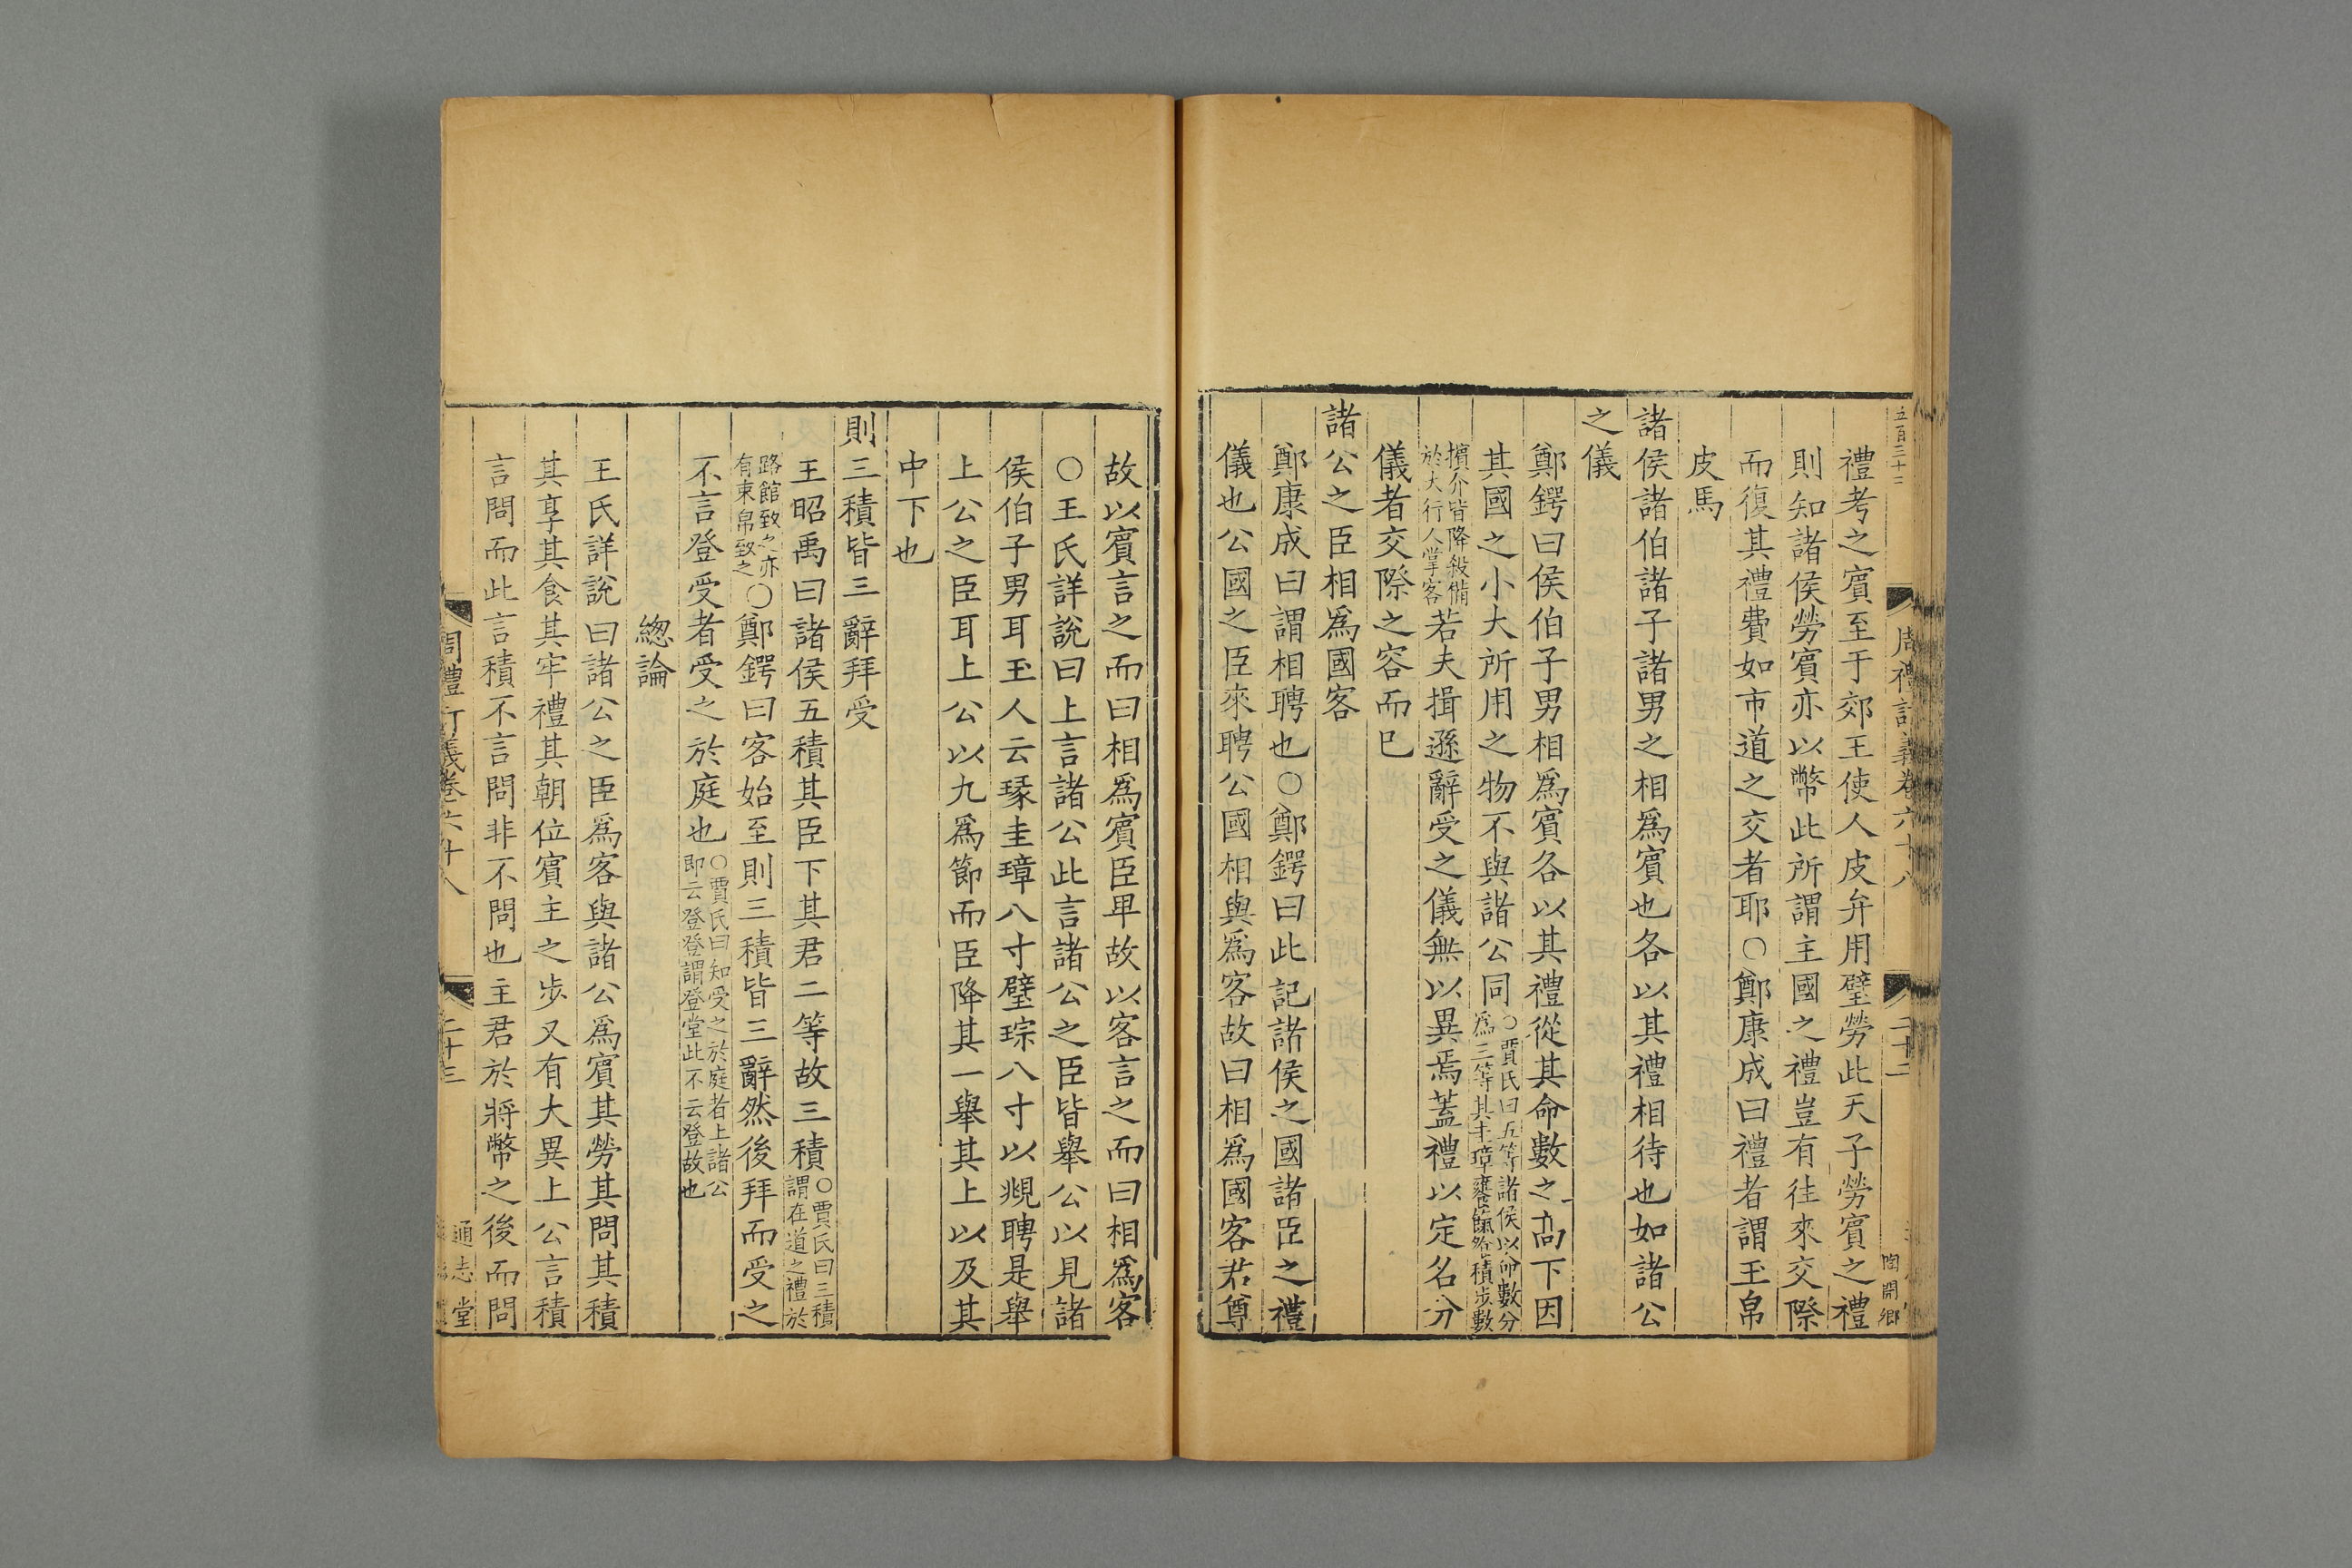 五百三十二
周禮訂義卷六十八
二十二
陶開鄉
禮考之賔至于郊王使人皮弁用璧勞此天子勞賔之禮
則知諸侯勞賔亦以幣此所謂主國之禮豈有徃來交際
而復其禮費如市道之交者耶○鄭康成曰禮者謂玉帛
皮馬
諸侯諸伯諸子諸男之相爲賔也各以其禮相待也如諸公
之儀
鄭鍔曰侯伯子男相爲賔各以其禮從其命數之高下因
其國之小大所用之物不與諸公同○賈氏曰五等諸侯以命數分爲三等其圭璋饔餼飱積步數
擯介皆降殺備於大行人掌客若夫揖遜辭受之儀無以異焉蓋禮以定名分
儀者交際之容而已
諸公之臣相爲國客
鄭康成曰謂相聘也○鄭鍔曰此記諸侯之國諸臣之禮
儀也公國之臣來聘公國相與爲客故曰相爲國客若尊
故以賔言之而曰相爲賔臣卑故以客言之而曰相爲客
○王氏詳說曰上言諸公此言諸公之臣皆舉公以見諸
侯伯子男耳玉人云瑑圭璋八寸璧琮八寸以覜聘是舉
上公之臣耳上公以九爲節而臣降其一舉其上以及其
中下也
則三積皆三辭拜受
王昭禹曰諸侯五積其臣下其君二等故三積○賈氏曰三積謂在道之禮於
路館致之亦有束帛致之○鄭鍔曰客始至則三積皆三辭然後拜而受之
不言登受者受之於庭也○賈氏曰知受之於庭者上諸公即云登登謂登堂此不云登故也
緫論
王氏詳說曰諸公之臣爲客與諸公爲賔其勞其問其積
其享其食其牢禮其朝位賔主之步又有大異上公言積
言問而此言積不言問非不問也主君於將幣之後而問
周禮訂義卷六十八
二十三
通志堂